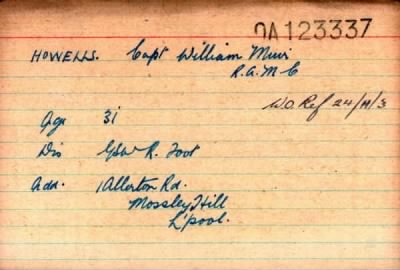 OA 123337
HOWELLS. Capt William Muir
R.A.M.C
W.O. Ref 24/H/3
Age 31
Dis GSW R. Foot
Add. 1 Allerton Rd.
Mossley Hill
L'pool.